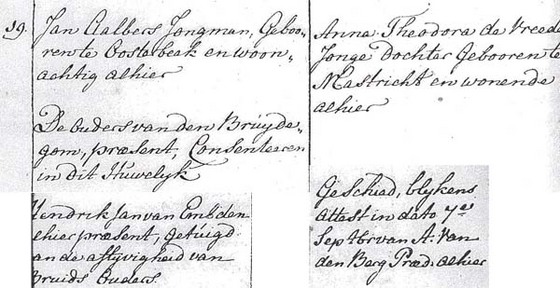 19.
Jan Aalbers Jongman, Geboo-
ren te Oosterbeek en woon-
achtig alhier
De Ouders van den Bruyde-
gom, præsent, Consenteeren
in dit Huwelyk
Hendrik Jan van Embden
alhier præsent, getuigd
an de aflyvigheid van
Bruids Ouders.
Anna Theodora de Vreede
Jonge Dochter Gebooren te
Mastricht en wonende
alhier
Geschied, blykens
attest in dato 7es
Septbr van A. van
den Berg Præd. alhier